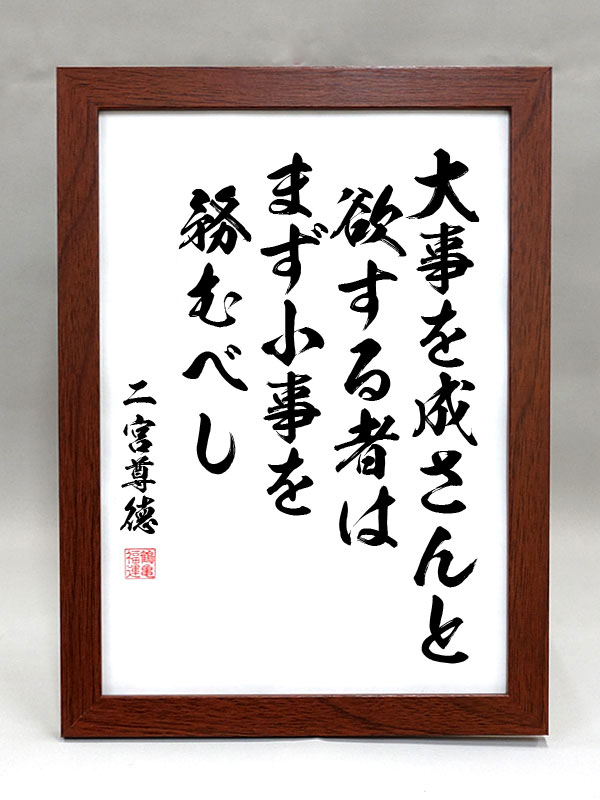 大事を成さんと
欲する者は
まず小事を
務むべし
二宮尊徳
鶴亀
福運